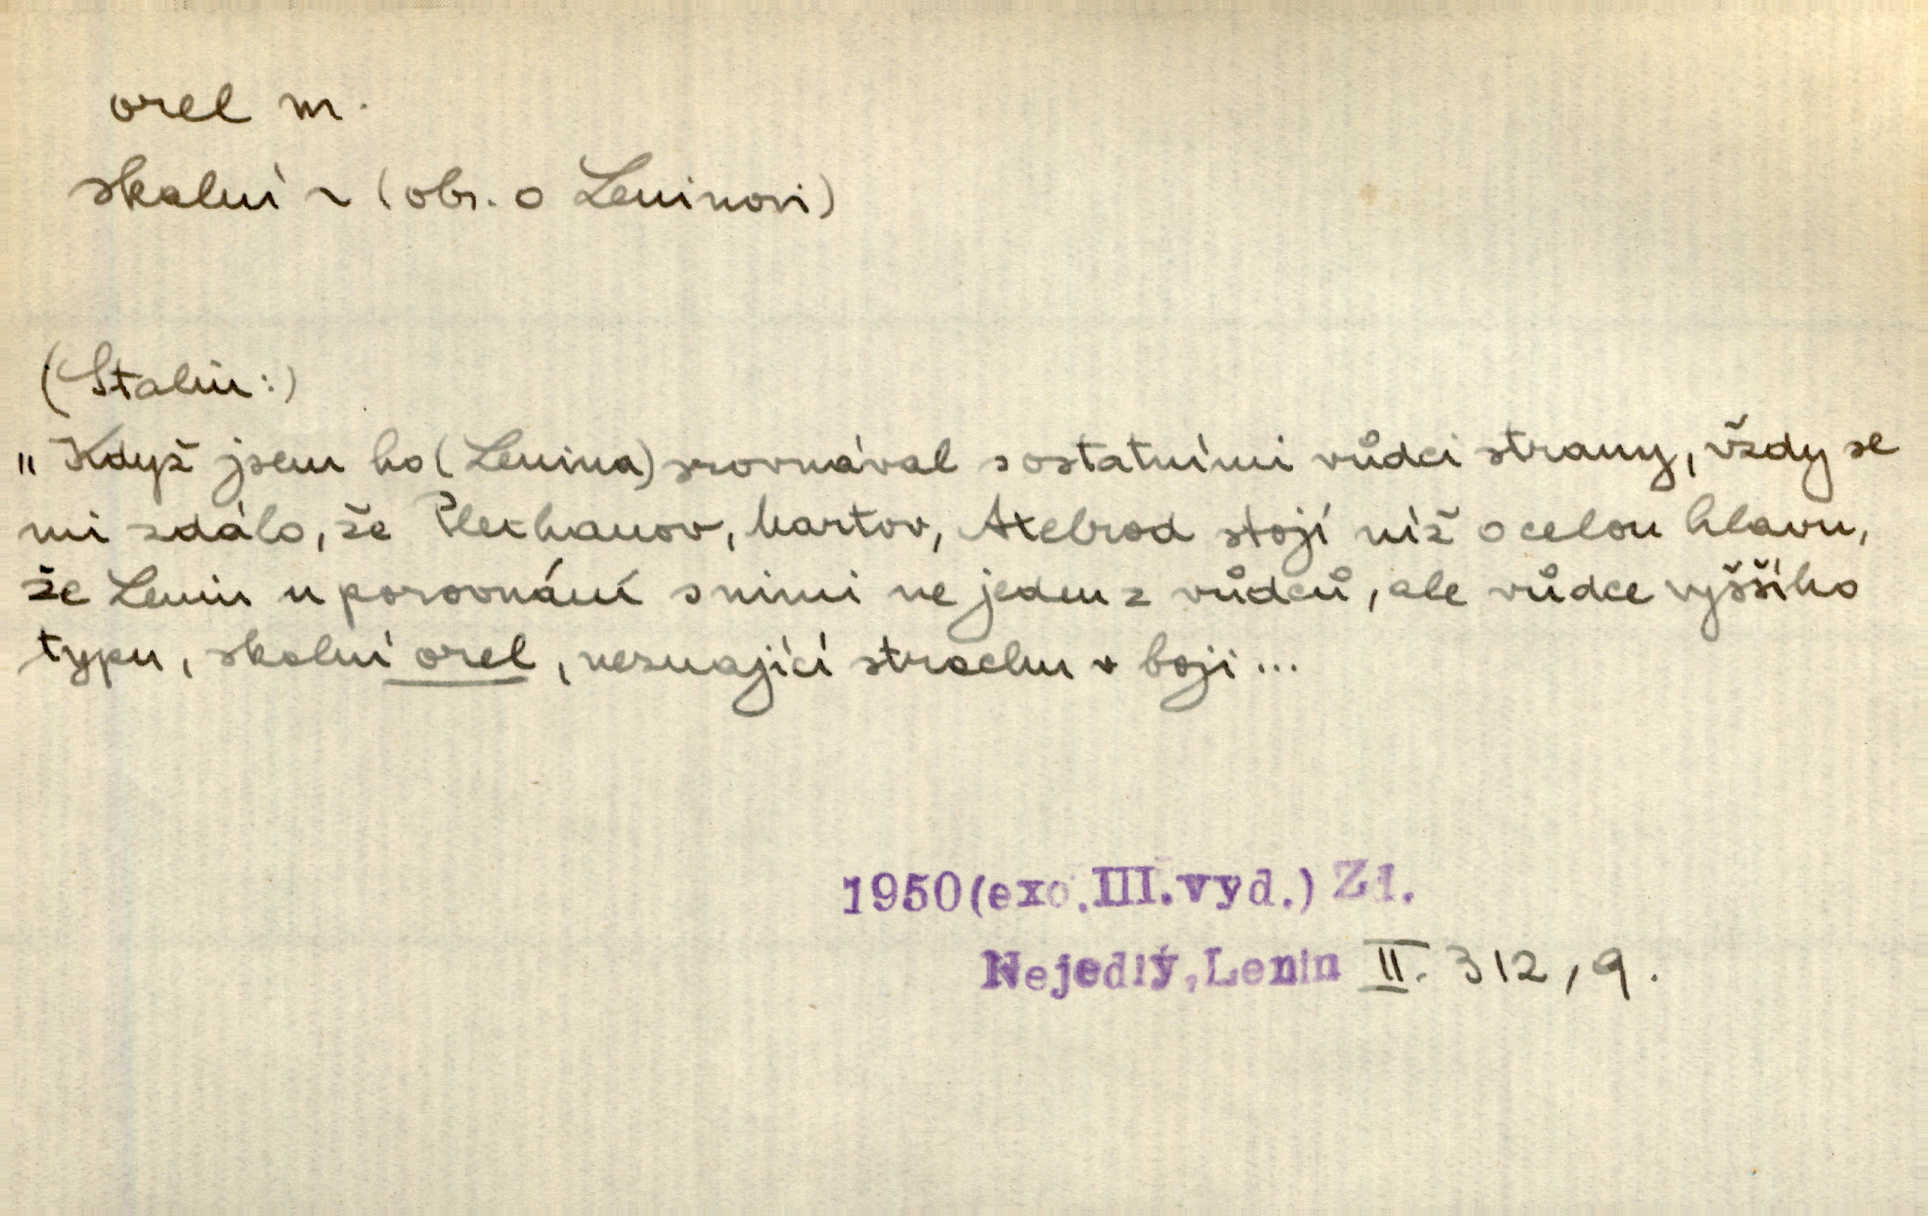 orel m.
skalní ~ (obr. o Leninovi)
(Stalin:)
„Když jsem ho (Lenina) srovnával s ostatními vůdci strany, vždy se
mi zdálo, že Plechanov, Martov, Axelrod stojí níž o celou hlavu,
že Lenin u porovnání s nimi ne jeden z vůdců, ale vůdce vyššího
typu, skalní orel, neznající strachu v boji...
1950(exc.III.vyd.) Zd.
Nejedlý, Lenin II. 312, 9.